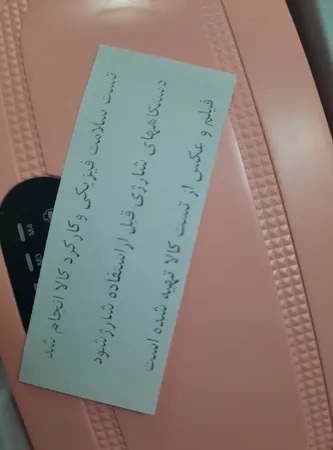 تست سلامت فیزیکی و کارکرد کالا انجام شد
دستگاههای شارژی قبل از استفاده شارژ شود
فیلم و عکس از تست کالا تهیه شده است
M4
M3